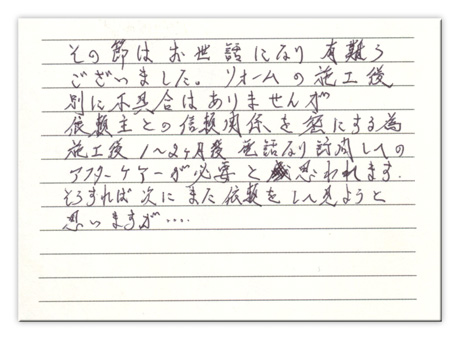 その節はお世話になり有難う
ございました。リォームの施工後
別に不具合はありませんが
依頼主との信頼関係を密にする為
施工後1〜2ヶ月後電話なり訪問しての
アフターケアーが必要と思われます.
そうすれば次にまた依頼をして見ようと
思いますが‥‥